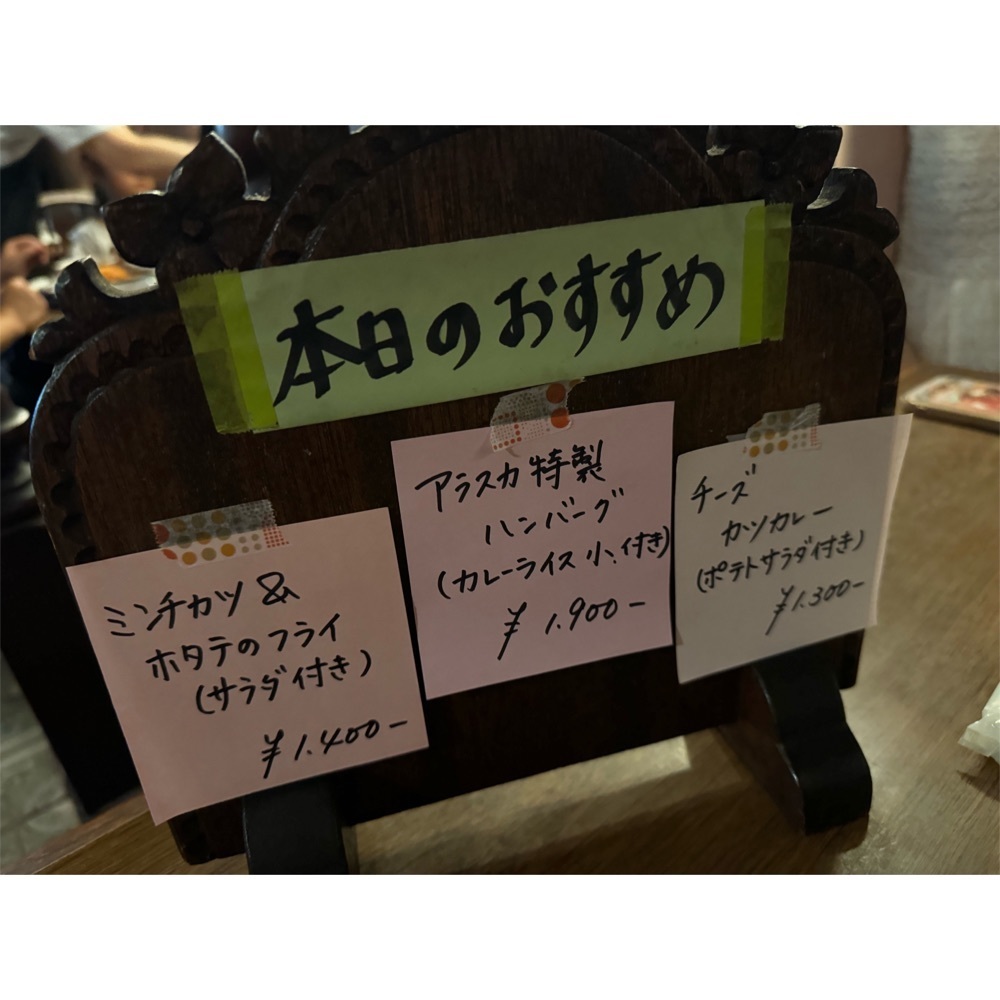 本日のおすすめ
ミンチカツ&
ホタテのフライ
(サラダ付き)
¥1.400-
アラスカ特製
ハンバーグ
(カレーライス小.付き)
¥1.900-
チーズ
カツカレー
(ポテトサラダ付き)
¥1.300-